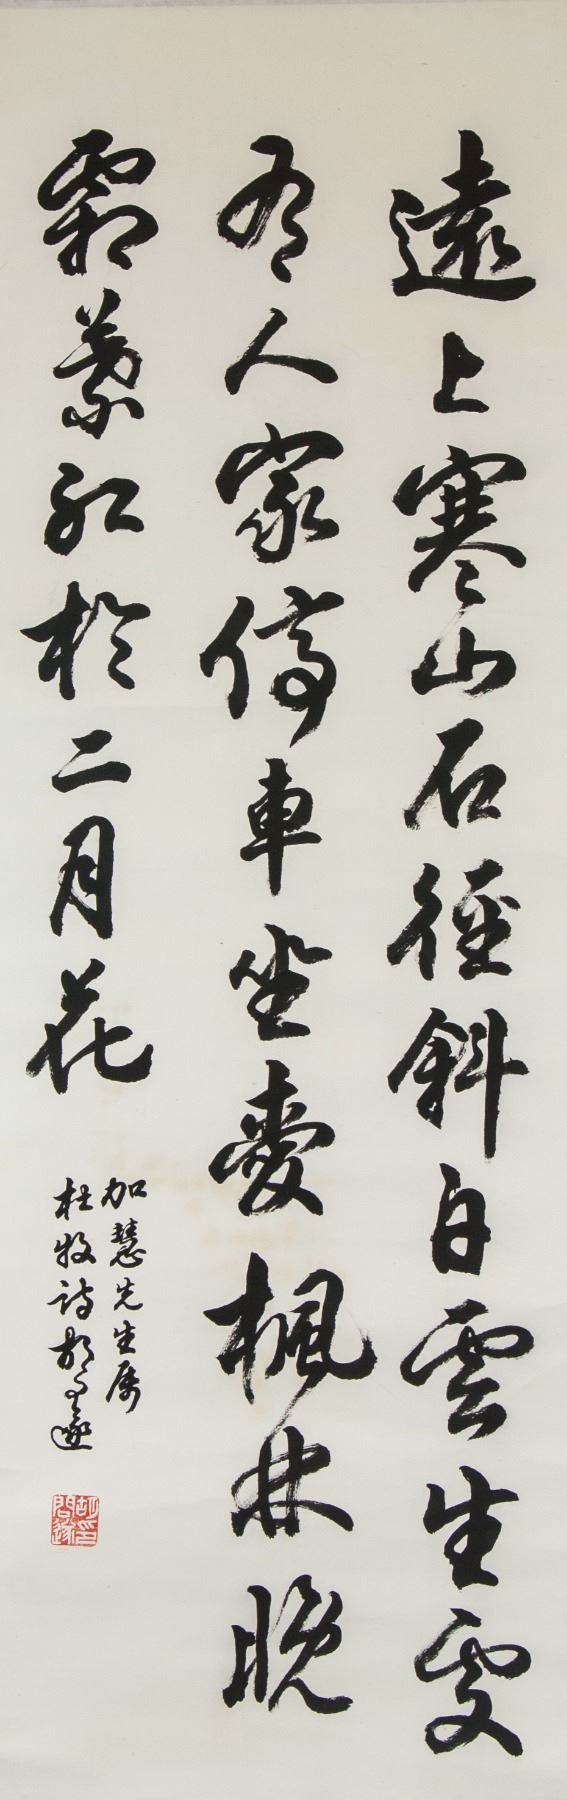 遠上寒山石徑斜白雲生處
有人家停車坐愛楓林晚
霜葉紅於二月花
加慧先生属
杜牧詩胡問遂
胡問遂印